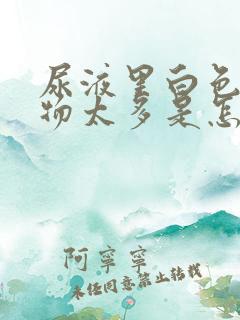 尿液里白色
物太多是怎
阿宁宁
未经同意禁止转载